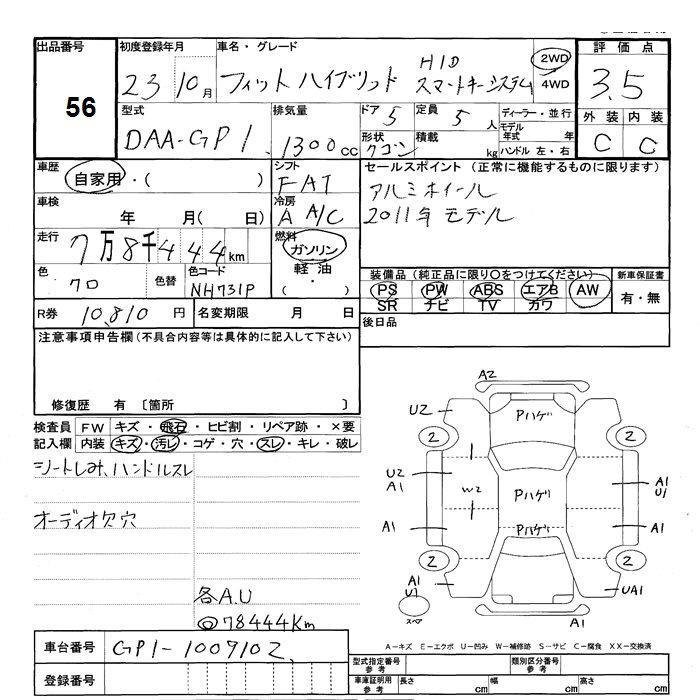 出品番号
56
初度登録年月
23 10月
車名・グレード
フィットハイブリッド
HID
スマートキーシステム
2WD
4WD
評価点
3.5
外装 内装
C C
型式
DAA-GP1
排気量
1300cc
ドア 5
形状
定員 5人
積載 kg
ディーラー・並行
モデル年式 年
ハンドル 左・右
車歴
自家用・( )
シフト
FAT
車検
年 月( 日)
冷房
A A/C
走行
7万8千444km
燃料
ガソリン
軽油
( ・ )
色
クロ
色替
色コード
NH731P
R券 10,810 円
名変期限 月 日
セールスポイント(正常に機能するものに限ります)
アルミホイール
2011年モデル
装備品(純正品に限り〇をつけてください)
PS PW ABS エアB AW
SR ナビ TV カワ
新車保証書
有・無
後日品
注意事項申告欄(不具合内容等は具体的に記入して下さい)
修復歴 有 〔箇所 〕
検査員記入欄
FW キズ・飛石・ヒビ割・リペア跡・×要
内装 キズ・汚レ・コゲ・穴・スレ・キレ・破レ
シートしみ、ハンドルスレ
オーディオ欠穴
各A.U
◎78444Km
A2
U2
Pハゲ
2
2
U2
A1
W2
Pハゲ
A1
U1
A1
Pハゲ
A1
2
2
A1
U1
スペア
UA1
A1
A-キズ E-エクボ U-凹み W-補修跡 S-サビ C-腐食 XX-交換済
車台番号 GP1-1009102
登録番号
型式指定番号 参考
類別区分番号 参考
車庫証明用 参考
長さ cm
幅 cm
高さ cm